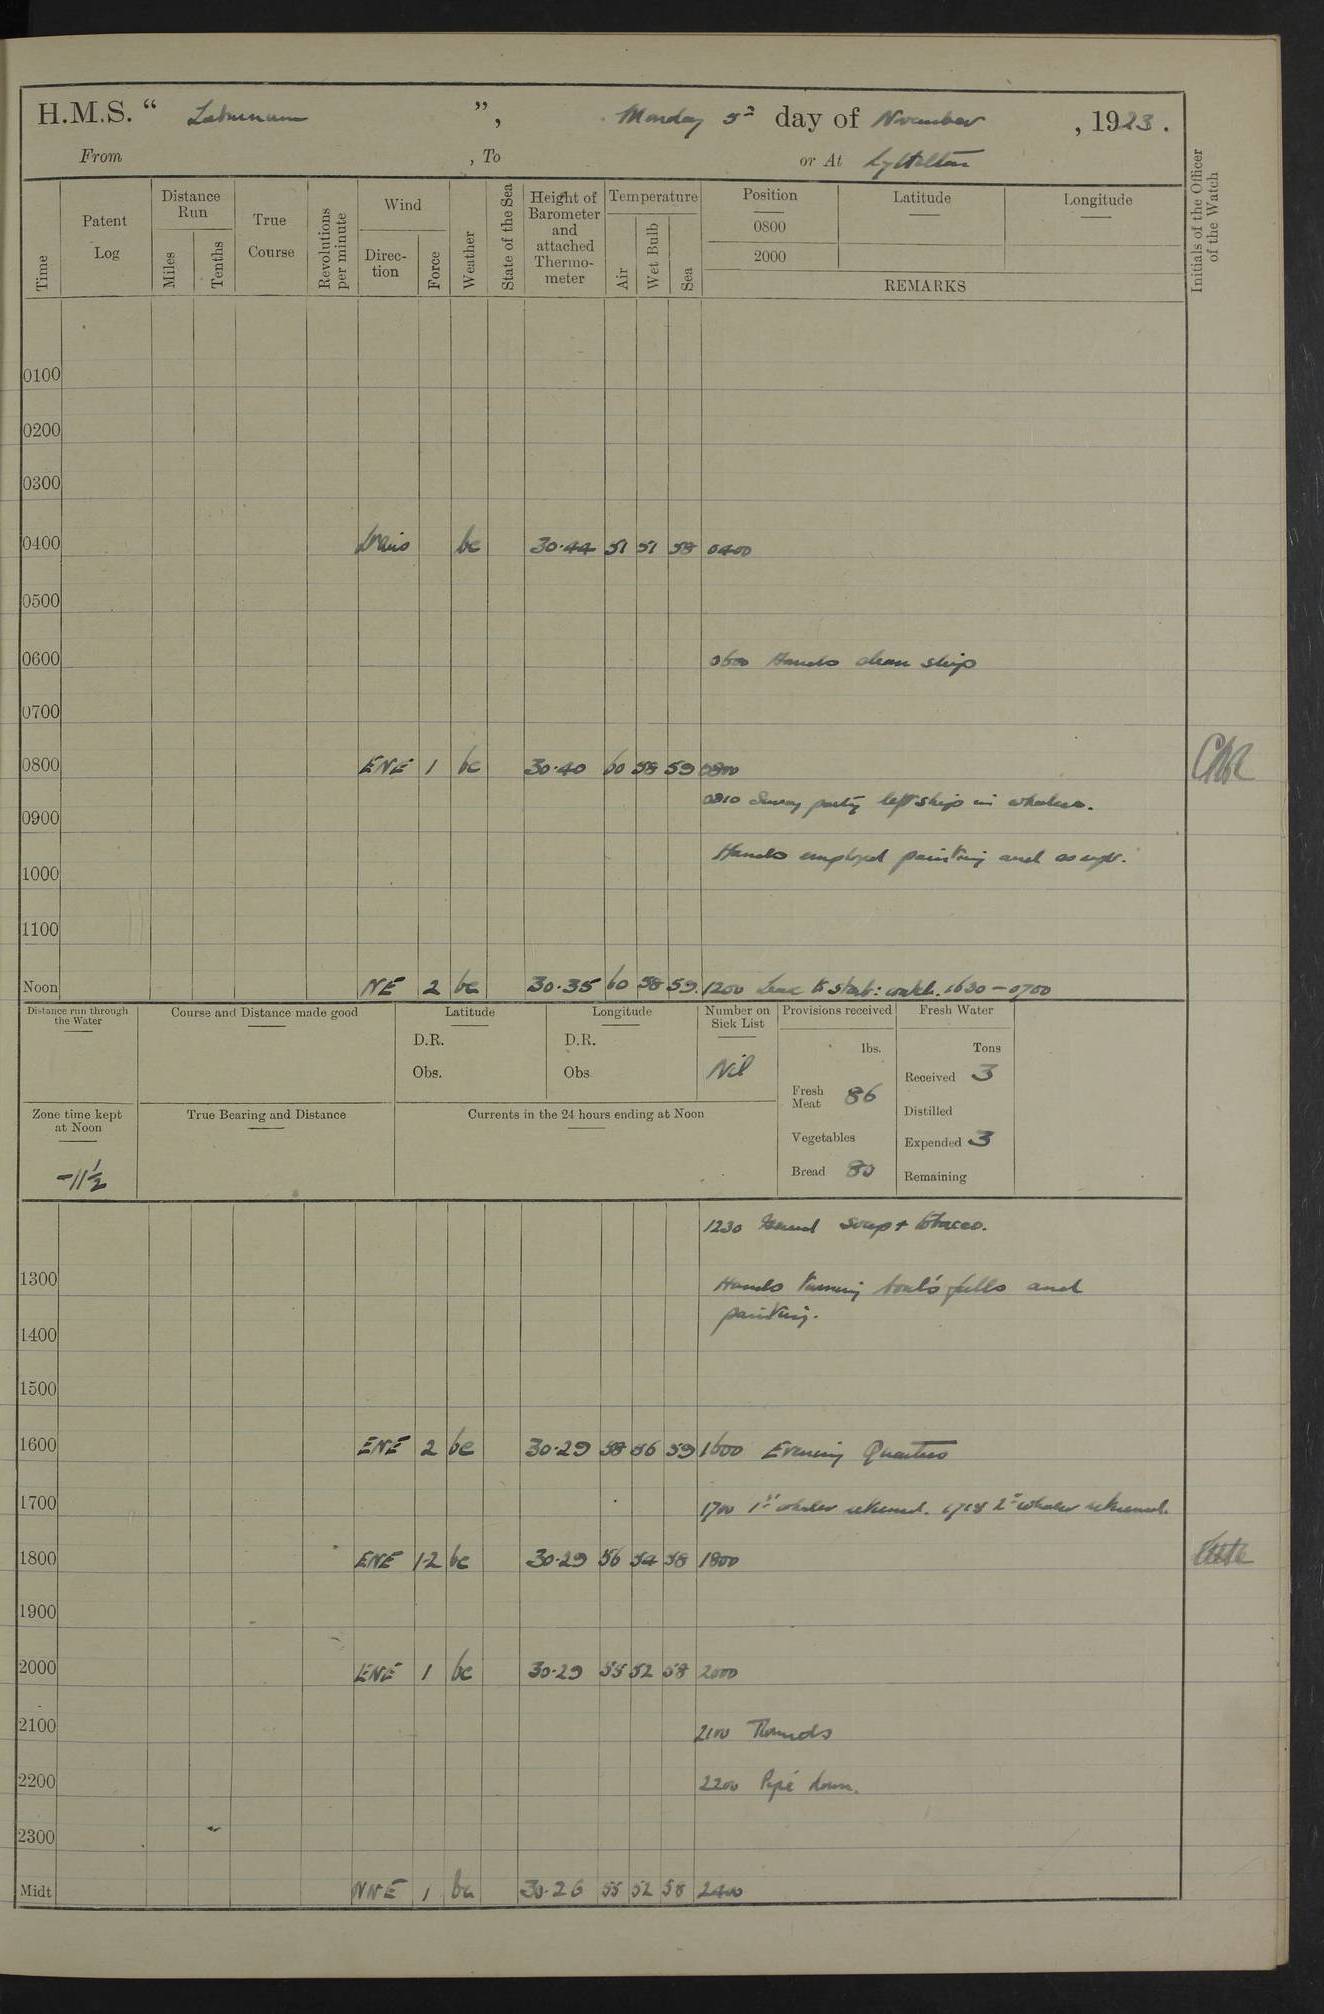 H.M.S. “ Laburnum ”, Monday 5th day of November, 1923.
From , To or At Lyttelton
Time
Patent Log
Distance Run
Miles
Tenths
True Course
Revolutions per minute
Wind
Direc-tion
Force
Weather
State of the Sea
Height of Barometer and attached Thermo-meter
Temperature
Air
Wet Bulb
Sea
Position Latitude Longitude
0800
2000
REMARKS
Initials of the Officer of the Watch
0100
0200
0300
0400 bc 30.44 51 51 58 0400
0500
0600 0600 Hands clean ship
0700
0800 ENE 1 bc 30.40 60 58 59 0800
0810 Survey party left ship in whalers.
0900
Hands employed painting and as reqr.
1000
1100
Noon NE 2 bc 30.35 60 58 59 1200 Leave to starb: watch. 1630 – 0700
Distance run through the Water
Course and Distance made good
Latitude
D.R.
Obs.
Longitude
D.R.
Obs
Number on Sick List
Nil
Provisions received
lbs.
Fresh Meat 86
Vegetables
Bread 80
Fresh Water
Tons
Received 3
Distilled
Expended 3
Remaining
Zone time kept at Noon
-11½
True Bearing and Distance
Currents in the 24 hours ending at Noon
1230 Issued soap + tobacco.
1300 Hands turning boat's falls and
painting.
1400
1500
1600 ENE 2 bc 30.29 58 56 59 1600 Evening Quarters
1700 1700 1st whaler returned. 1715 2nd whaler returned.
1800 ENE 1-2 bc 30.29 56 54 58 1800
1900
2000 ENE 1 bc 30.29 55 52 58 2000
2100 2100 Rounds
2200 2200 Pipe down.
2300
Midt NNE 1 bc 30.26 55 52 58 2400